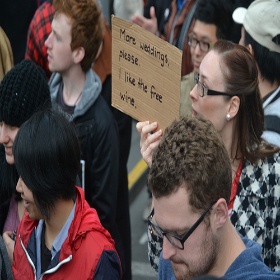 More weddings,
please.
I like the free
wine.